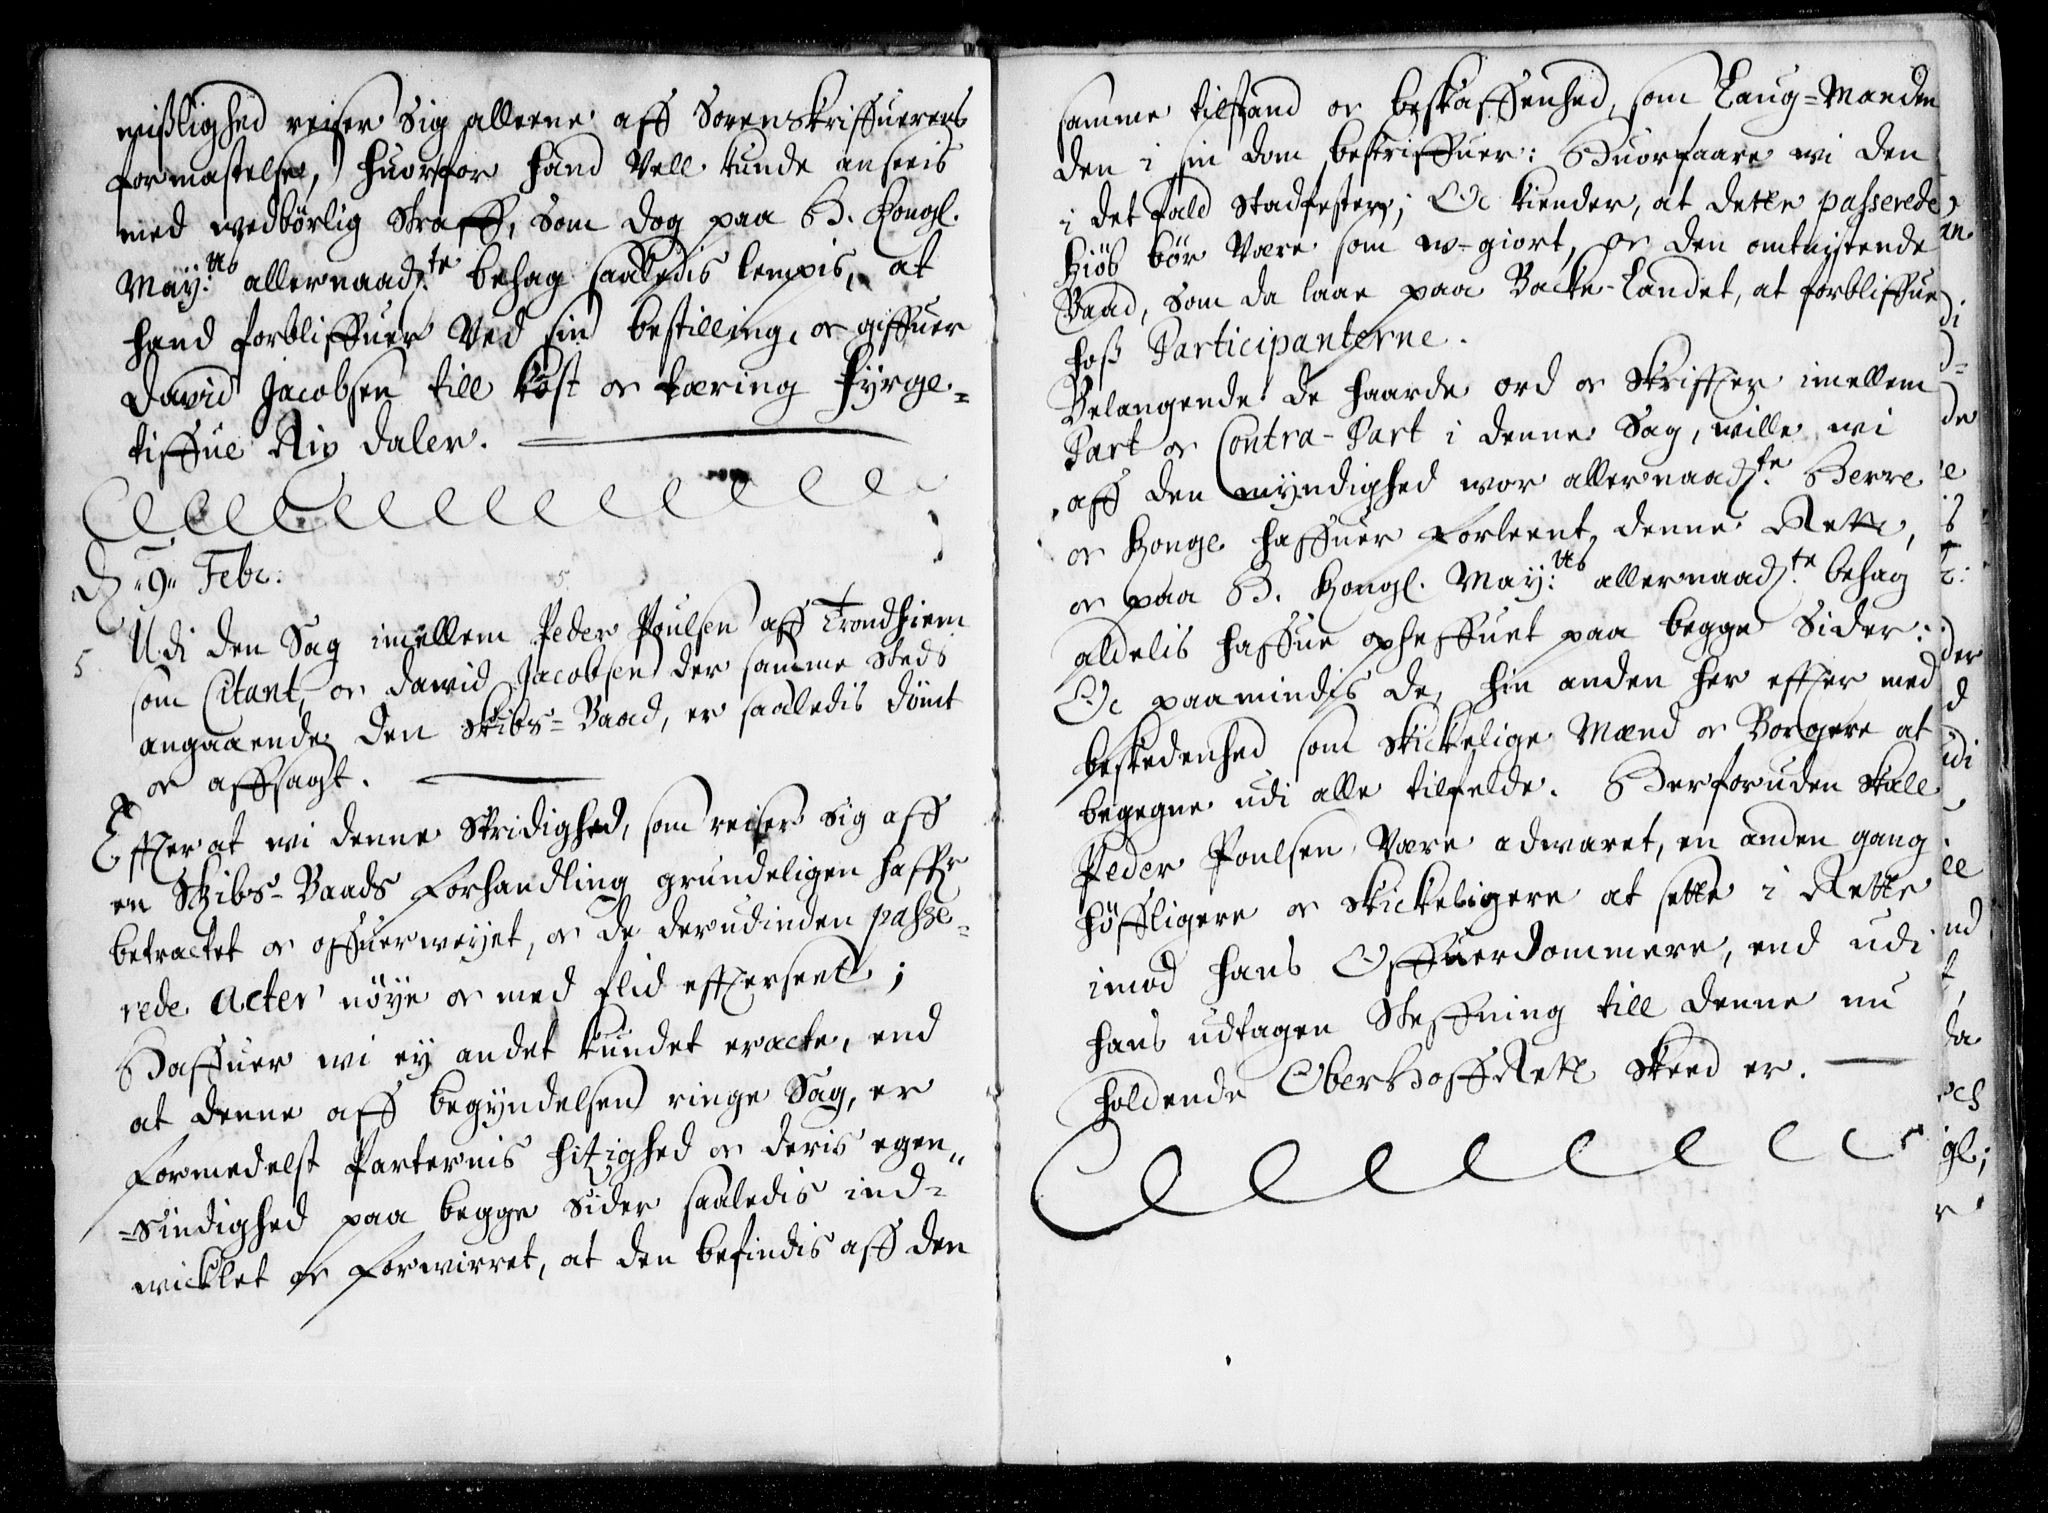 mißlighed reiser sig alleene aff Sorenskriffuerens
formastelse, huorfor hand Vell kunde anseeis
med wedbörlig straff, som dog paa H. Kongl.
May:tts allernaad:te behag saaledis lempis, at
hand forbliffuer Ved sin bestilling, oc giffuer
David Jacobsen till kost oc tæring Fyrge-
tiffue Rix daler.
D. 9. Febr:
5
Udi den Sag imellem Peder Poulsen aff Trondhiem
som Citant, oc David Jacobsen der samme steds
angaaende den Skibs-Baad, er saaledis dömt
oc affsagt.
Effter at wi denne Stridighed, som reiser sig aff
en Skibs-Baads forhandling grundeligen haffr
betractet oc offuerweyet, oc de derudinden passe-
rede Acter nöye oc med flid effterseet;
Haffuer wi ey andet kundet eracte, end
at denne aff begyndelsen ringe Sag, er
formedelst Parternis hitzighed oc deris egen-
-sindighed paa begge sider saaledis ind-
wicklet oc forwirret, at den befindis aff den
samme tilstand oc beskaffenhed, som Laug-Manden
den i sin dom beskriffuer: Huorfaare wi den
i det fald stadfester; Oc kiender, at dette passerede
kiöb bör Være som w-giort, oc den omtuistende
Baad, som da laae paa Backe-Landet, at forbliffue
hoß Participanterne.
Belangende de haarde ord oc skriffter imellem
Part oc Contra-Part i denne Sag, wille wi
aff den myndighed wor allernaad:te Herre
oc Konge haffuer forleent denne Rett,
oc paa H. Kongl. May:tts allernaad:te behag
aldelis haffue opheffuet paa begge Sider:
Oc paamindis de, hin anden her effter med
beskedenhed som skickelige Mænd oc Borgere at
begegne udi alle tilfelde. Herforuden skall
Peder Poulsen Være adwaret, en anden gang
höffligere oc skickeligere at sette i Rette
imod hans Offuerdommere, end udi
hans udtagen Steffning till denne nu
holdende OberHoffRett skeed er.